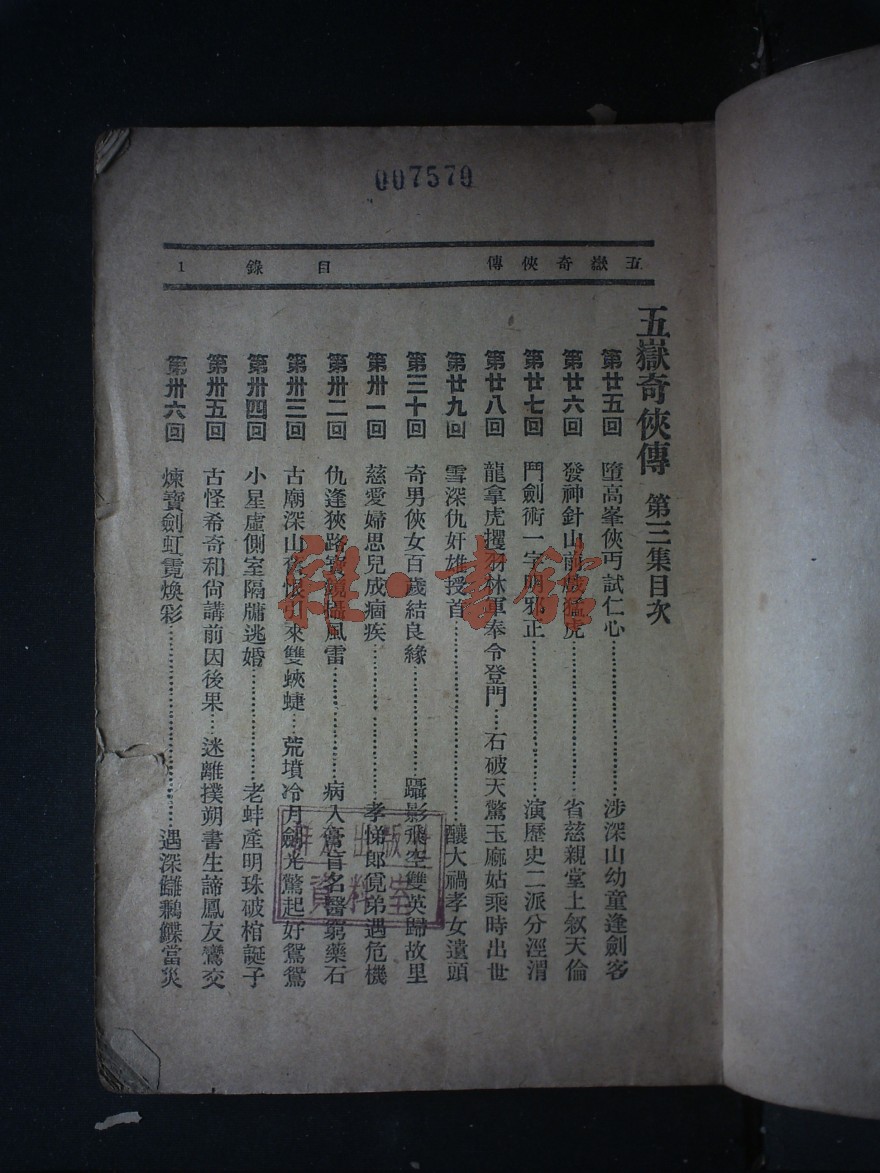 007579
五嶽奇俠傳 目錄 1
五嶽奇俠傳 第三集目次
第廿五回 墮高峯俠丐試仁心……涉深山幼童逢劍客
第廿六回 發神針山前斃猛虎……省慈親堂上敘天倫
第廿七回 鬥劍術一字明邪正……演歷史二派分涇渭
第廿八回 龍拿虎攫羽林軍奉令登門…石破天驚玉麻姑乘時出世
第廿九回 雪深仇奸雄授首……釀大禍孝女遺頭
第三十回 奇男俠女百歲結良緣……躡影飛空雙英歸故里
第卅一回 慈愛婦思兒成痼疾……孝悌郎覓弟遇危機
第卅二回 仇逢狹路寶鏡攝風雷……病入膏肓名醫窮藥石
第卅三回 古廟深山 引來雙蛺蝶…荒墳冷月劍光驚起好鴛鴦
第卅四回 小星虛側室隔牖逃婚……老蚌產明珠破棺誕子
第卅五回 古怪希奇和尙講前因後果…迷離撲朔書生諦鳳友鸞交
第卅六回 煉寶劍虹霓煥彩……遇深讎鶼鰈當災
雜·書館
出版
資料室